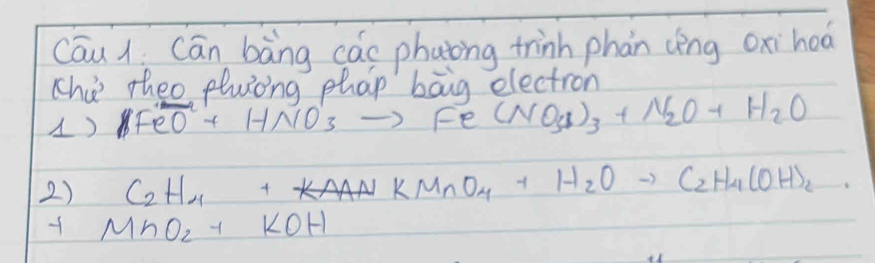 Câu 1: Cân bằng các phương trình phản ứng oxi hoá
khử theo phương pháp bằng electron
1) FeO + HNO3 → Fe(NO3)3 + N2O + H2O
2) C2H4 + KMnO4 + H2O → C2H4(OH)2.
+ MnO2 + KOH